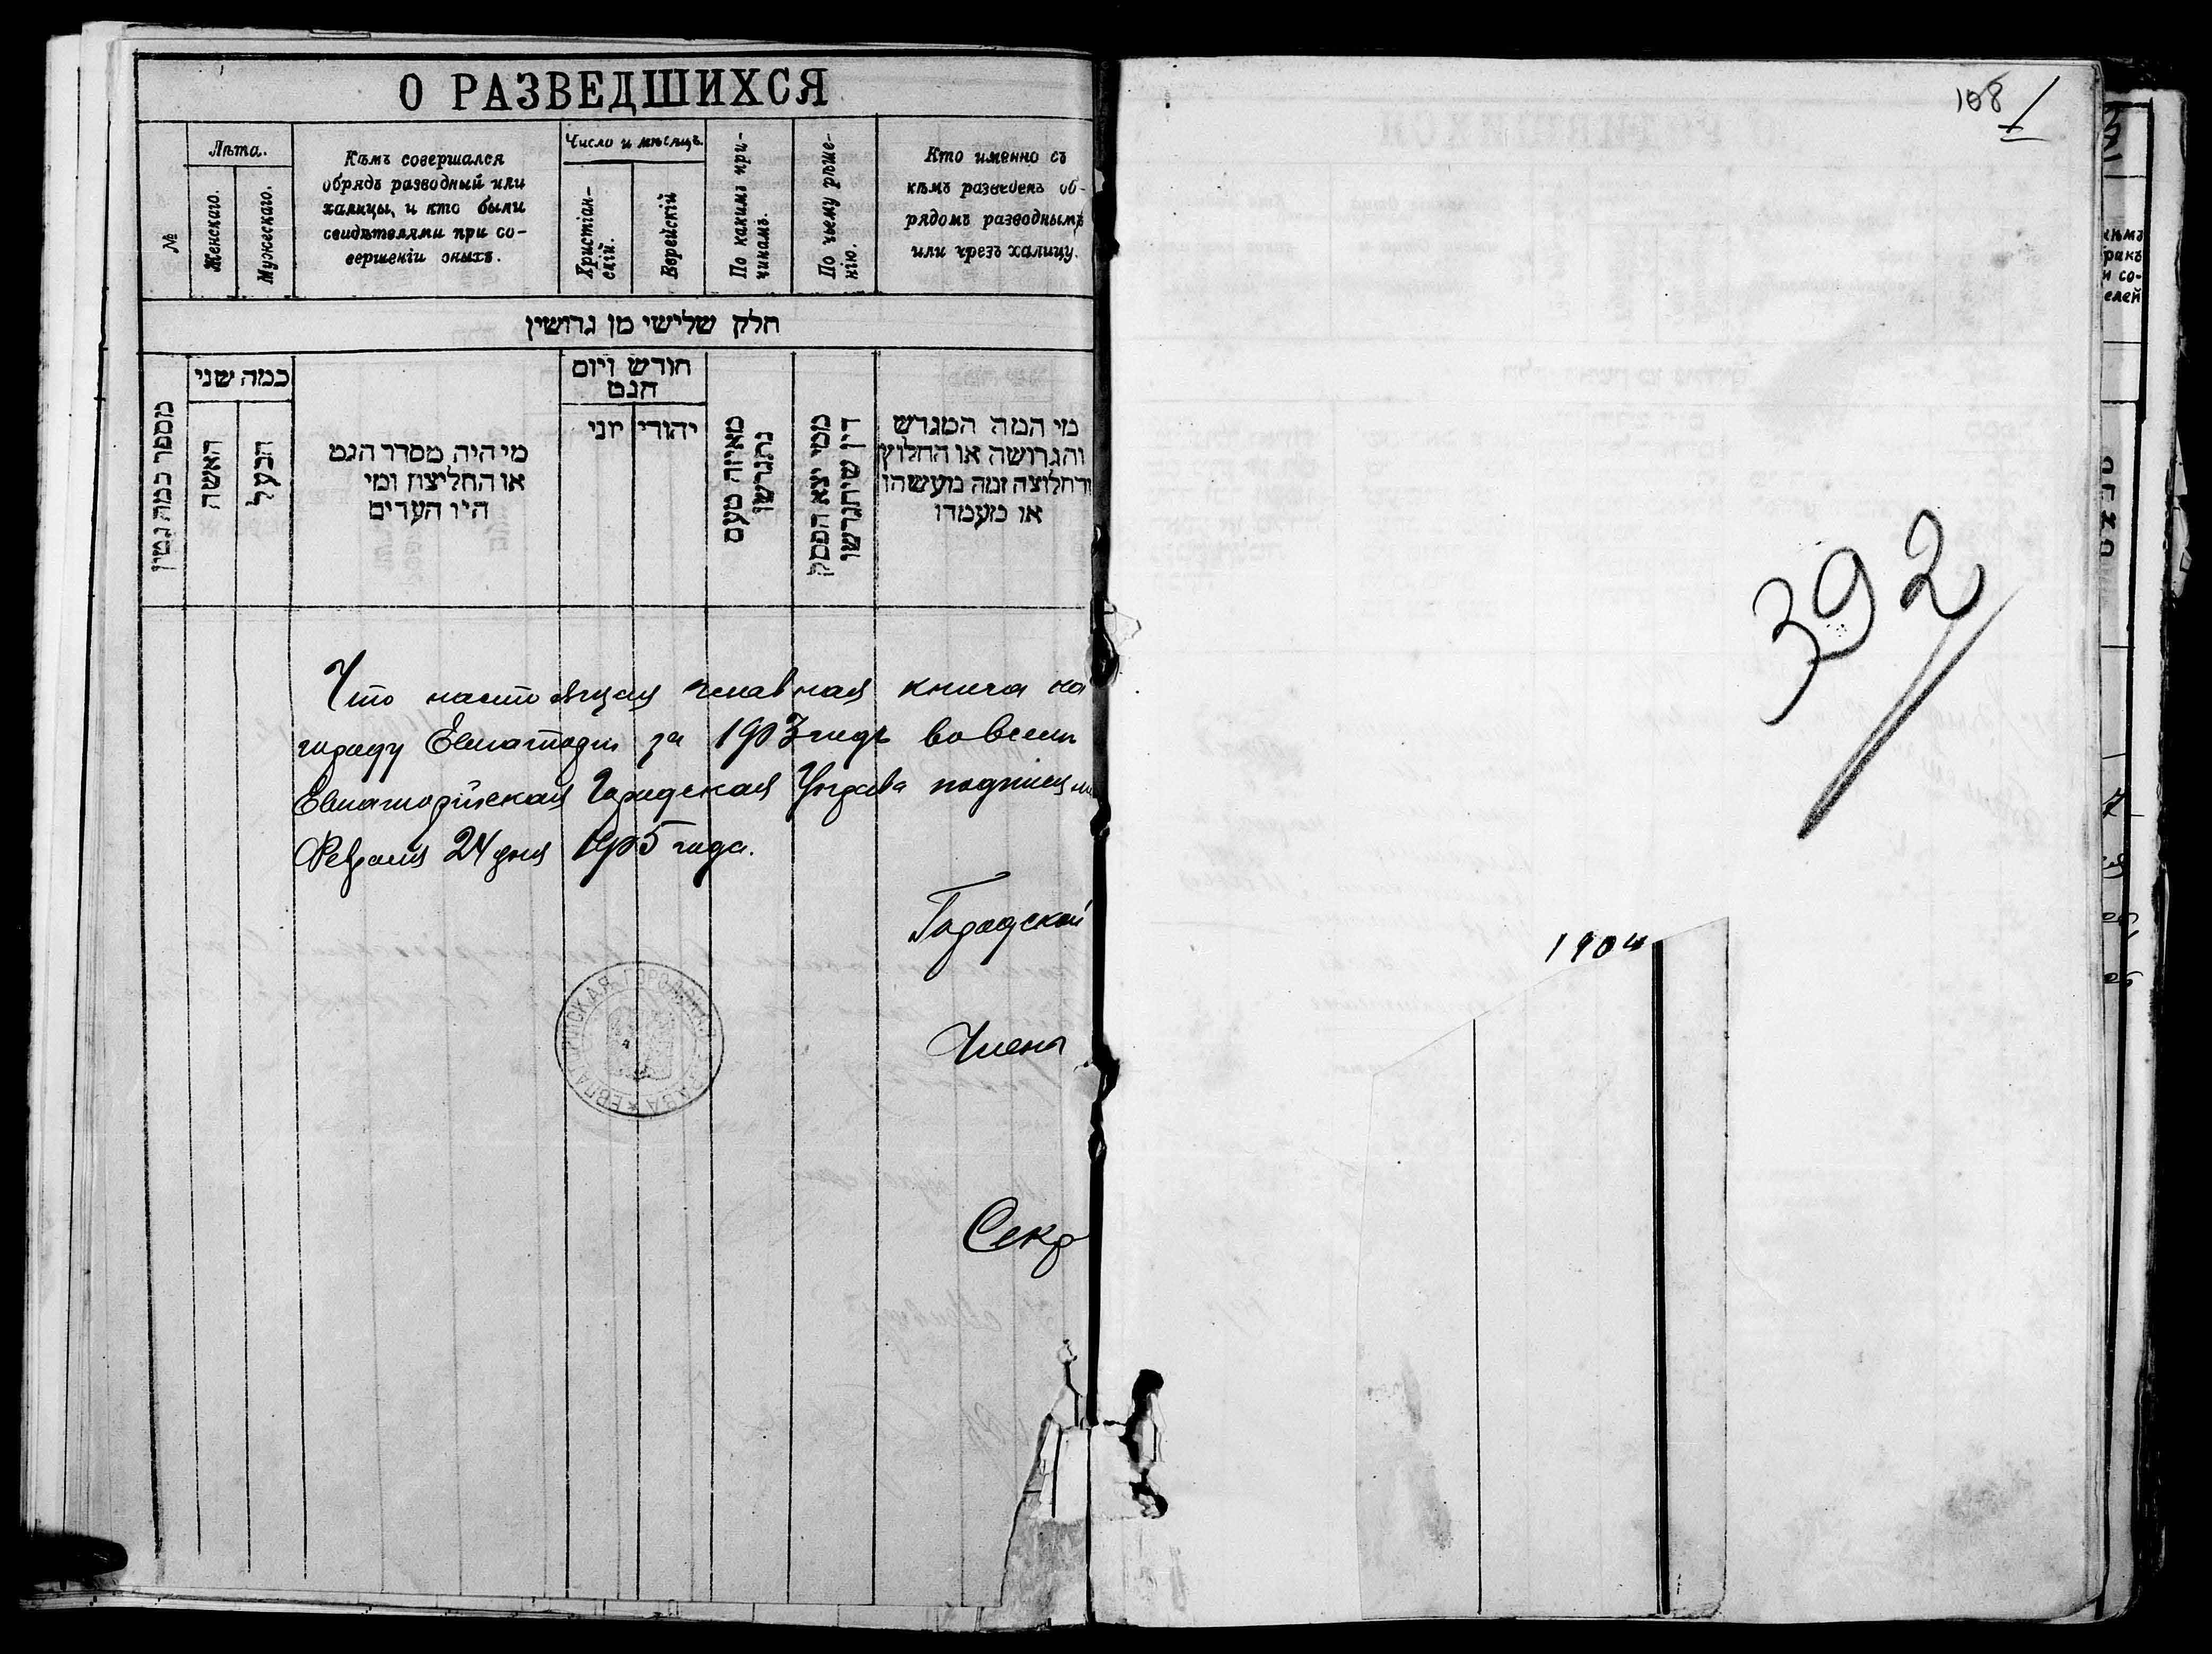 О РАЗВЕДШИХСЯ
№
Лѣта.
Женскаго.
Мужескаго.
Кѣмъ совершался
обрядъ разводный или
халицы, и кто были
свидѣтелями при со-
вершеніи оныхъ.
Число и мѣсяцъ.
Христіан-
скій.
Еврейскій
По какимъ при-
чинамъ.
По чьему рѣше-
нію.
Кто именно съ
кѣмъ разведенъ об-
рядомъ разводнымъ
или чрезъ халицу.
חלק שלישי מן גרושין
מספר כמה גטין
כמה שני
האשה
הבעל
מי היה מסדר הגט
או החליצה ומי
היו העדים
חודש ויום
הגט
יוני
יהודי
מאיזה טעם
נתגרשו
ממי יצא הפסק
דין שיתגרשו
מי המה המגרש
והגרושה או החלוץ
והחלוצה ומה מעשהו
או מעמדו
Что настоящая главная книга по
городу Евпаторіи за 1903 годъ во всемъ
Евпаторійская Городская Управа подписи
Февраля 24 дня 1905 года.
Городской
Члены
Секр
ЕВПАТОРІЙСКАЯ ГОРОДСКАЯ УПРАВА
108
1
392
1904